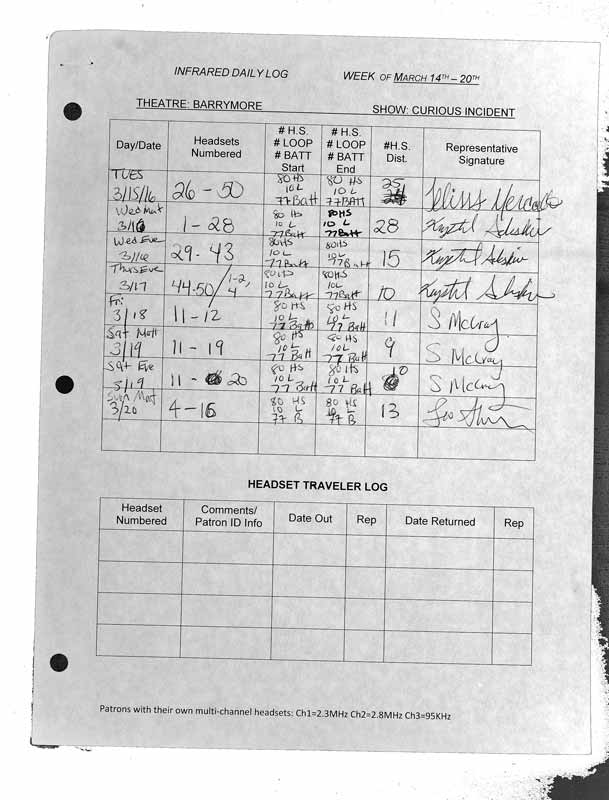 INFRARED DAILY LOG WEEK OF MARCH 14TH – 20TH
THEATRE: BARRYMORE SHOW: CURIOUS INCIDENT
Day/Date Headsets Numbered # H.S. # LOOP # BATT Start # H.S. # LOOP # BATT End #H.S. Dist. Representative Signature
TUES 3/15/16 26 - 50 80 HS 10 L 77 Batt 80 HS 10 L 77 BATT 25
Wed Mat 3/16 1 - 28 80 HS 10 L 77 Batt 80 HS 10 L 77 Batt 28 Krystal
Wed Eve 3/16 29 - 43 80 HS 10 L 77 Batt 80 HS 10 L 77 Batt 15 Krystal
Thurs Eve 3/17 44-50/1-2, 4 80 HS 10 L 77 Batt 80 HS 10 L 77 Batt 10 Krystal
Fri 3/18 11 - 12 80 HS 10 L 77 Batt 80 HS 10 L 77 Batt 11 S McCray
Sat Matt 3/19 11 - 19 80 HS 10 L 77 Batt 80 HS 10 L 77 Batt 9 S McCray
Sat Eve 3/19 11 - 20 80 HS 10 L 77 Batt 80 HS 10 L 77 Batt 10 S McCray
Sun Mat 3/20 4 - 16 80 HS 10 L 77 B 80 HS 10 L 77 B 13
HEADSET TRAVELER LOG
Headset Numbered Comments/ Patron ID Info Date Out Rep Date Returned Rep
Patrons with their own multi-channel headsets: Ch1=2.3MHz Ch2=2.8MHz Ch3=95KHz